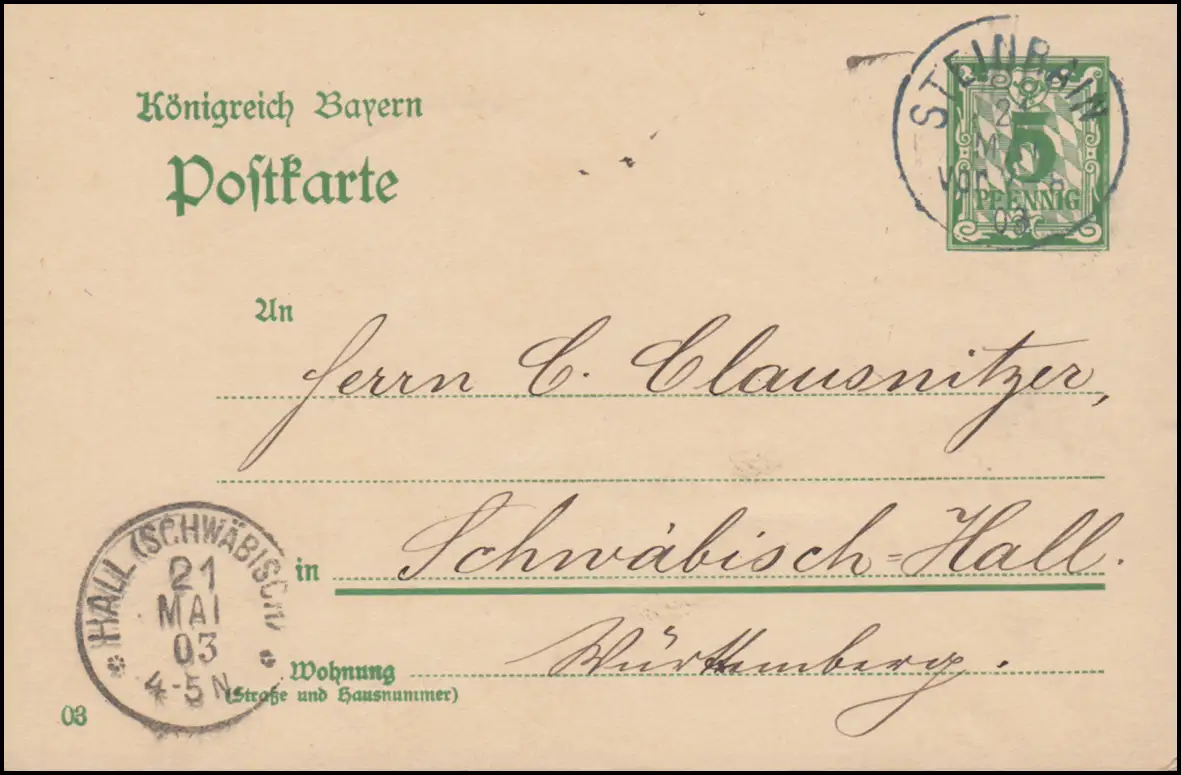 Königreich Bayern
Postkarte
STEINRAIN
MAI
Vor
03
5
PFENNIG
An
Herrn C. Clausnitzer,
in Schwäbisch-Hall.
Wohnung Württemberg.
(Straße und Hausnummer)
HALL (SCHWÄBISCH)
21
MAI
03
4-5 N.
03